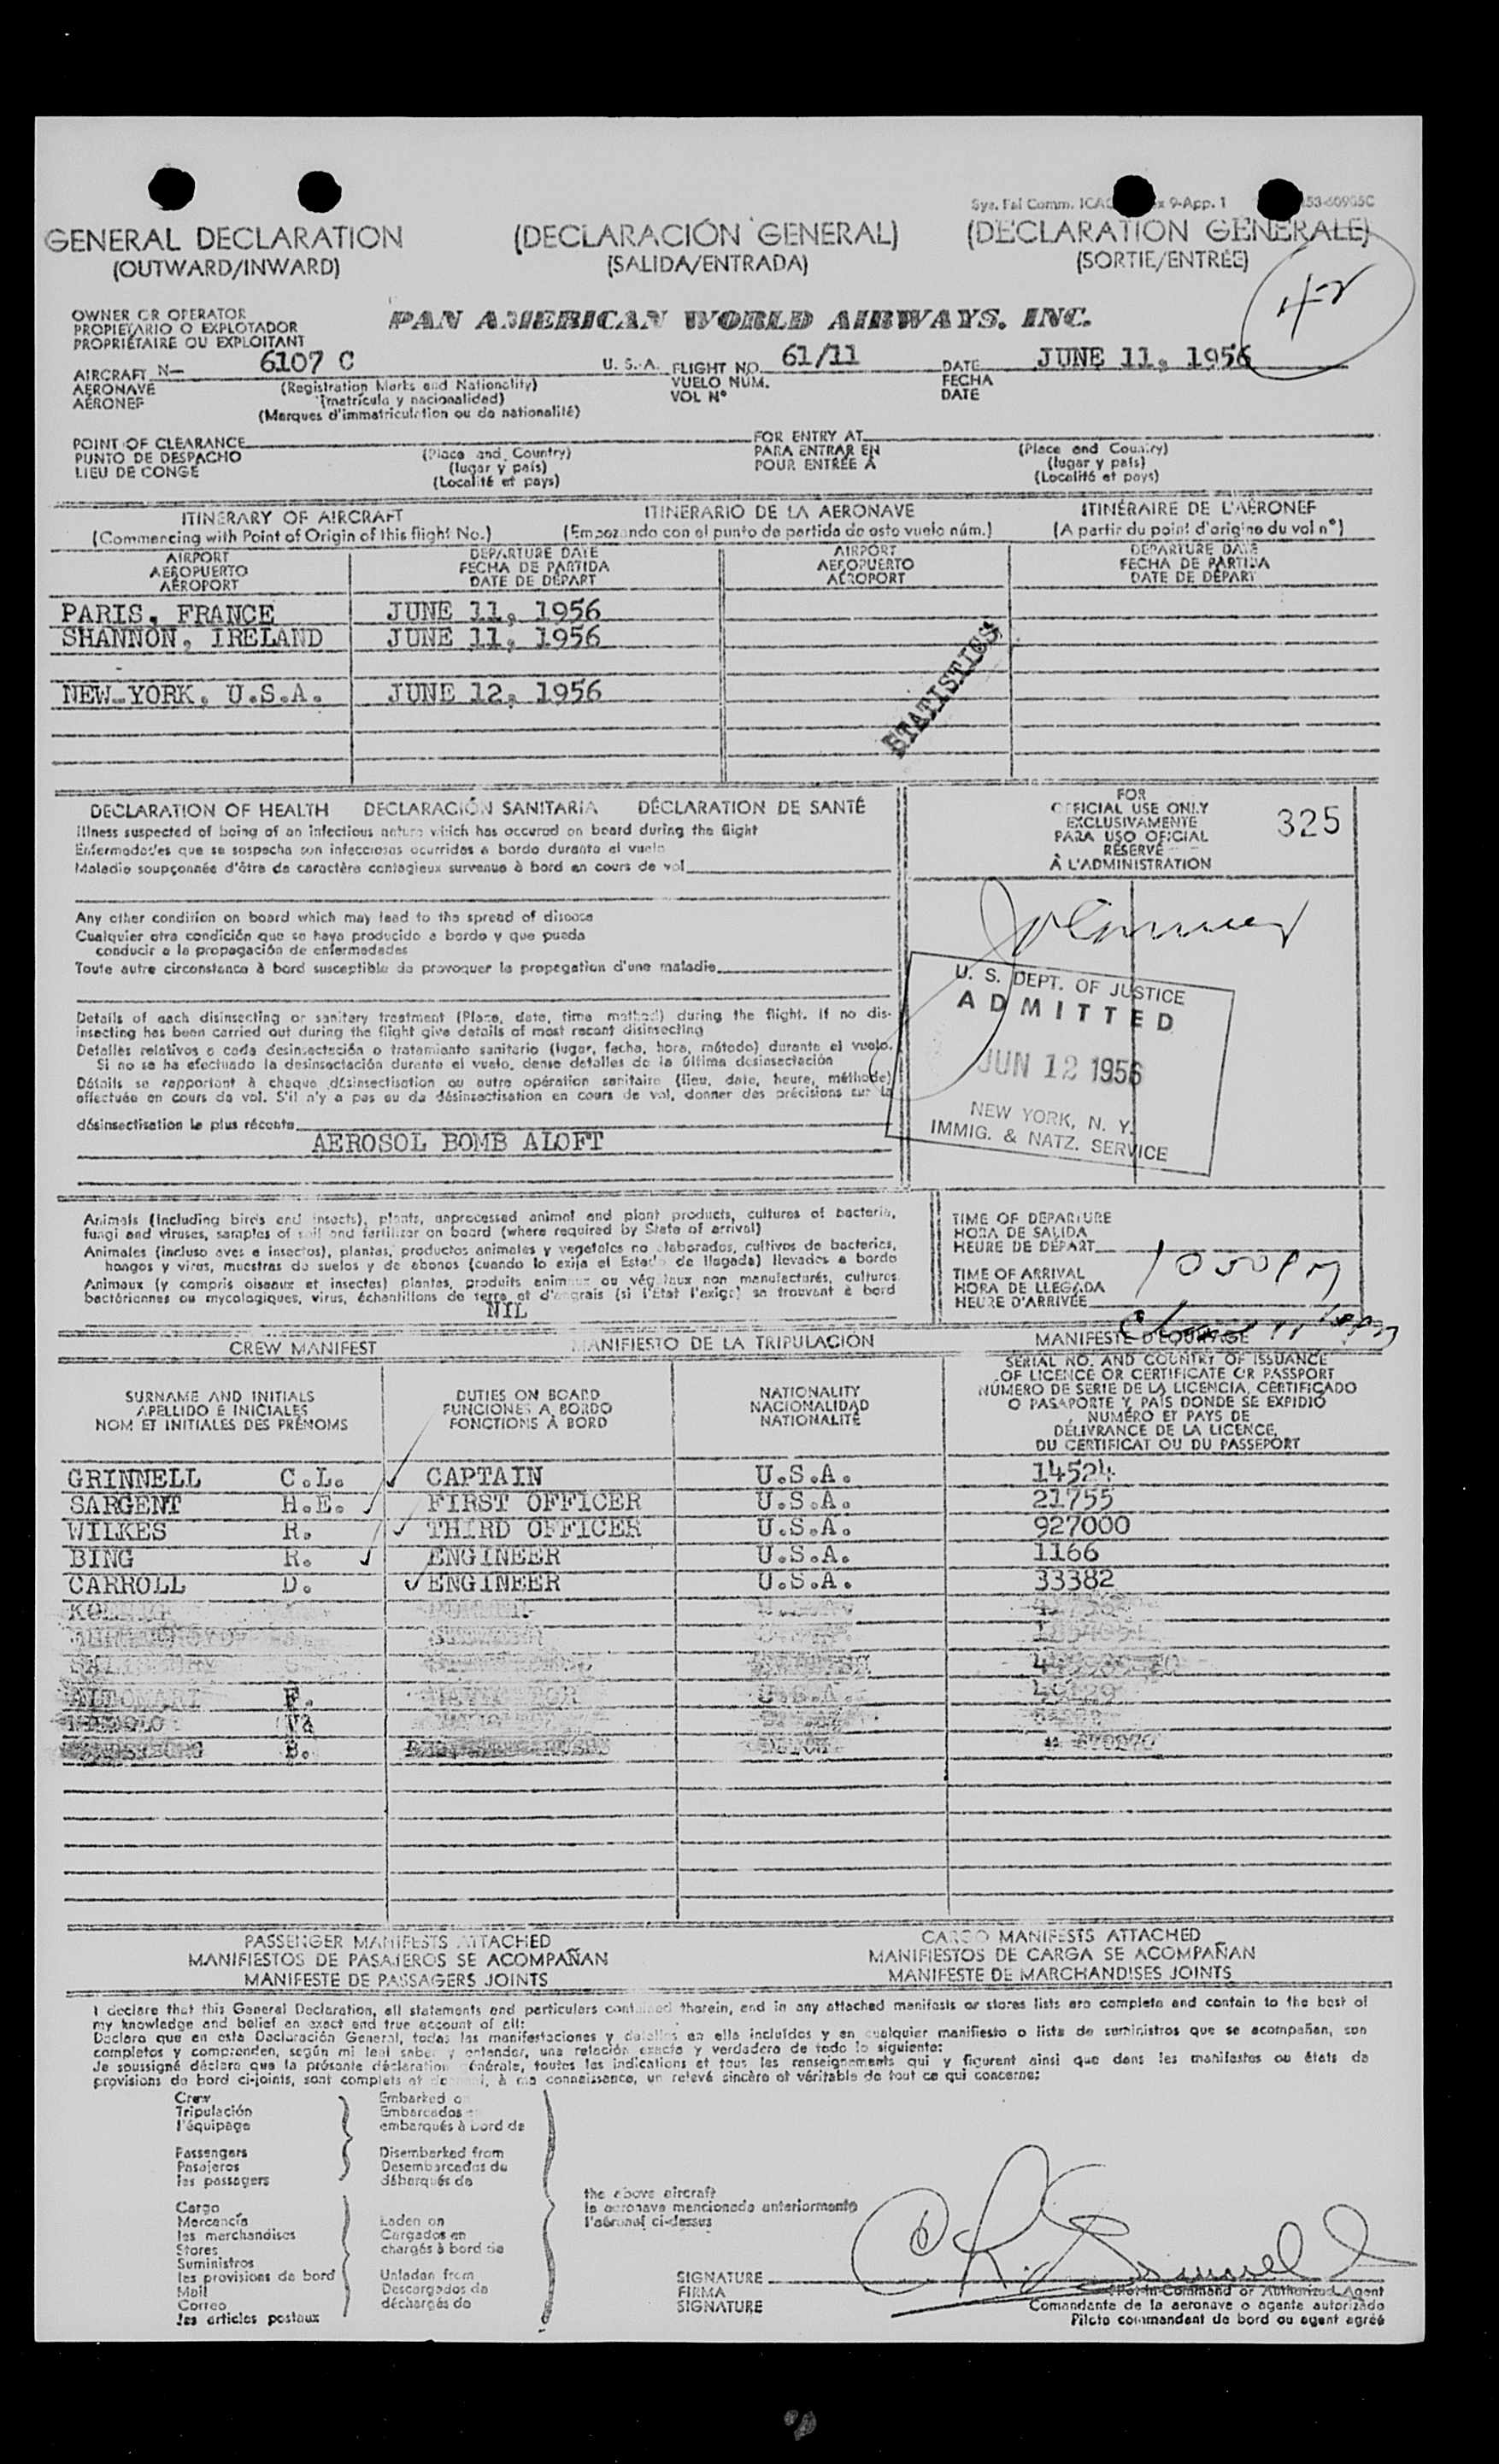 Sys. Fal Comm. ICAO 9-App. 1
GENERAL DECLARATION (DECLARACIÓN GENERAL) (DECLARATION GENERALE)
(OUTWARD/INWARD) (SALIDA/ENTRADA) (SORTIE/ENTRÉE)
OWNER OR OPERATOR
PROPIETARIO O EXPLOTADOR
PROPRIÉTAIRE OU EXPLOITANT
PAN AMERICAN WORLD AIRWAYS, INC.
AIRCRAFT N— 6107 C U. S. A. FLIGHT NO. 61/11 DATE JUNE 11, 1956
AERONAVE (Registration Marks and Nationality) VUELO NÚM. FECHA
AÉRONEF (matrícula y nacionalidad) VOL Nº DATE
(Marques d'immatriculation ou de nationalité)
POINT OF CLEARANCE FOR ENTRY AT
PUNTO DE DESPACHO (Place and Country) PARA ENTRAR EN (Place and Country)
LIEU DE CONGÉ (lugar y país) POUR ENTRÉE À (lugar y país)
(Localité et pays) (Localité et pays)
ITINERARY OF AIRCRAFT ITINERARIO DE LA AERONAVE ITINÉRAIRE DE L'AÉRONEF
(Commencing with Point of Origin of this flight No.) (Empezando con el punto de partida de este vuelo núm.) (A partir du point d'origine du vol nº)
AIRPORT DEPARTURE DATE AIRPORT DEPARTURE DATE
AEROPUERTO FECHA DE PARTIDA AEROPUERTO FECHA DE PARTIDA
AÉROPORT DATE DE DÉPART AÉROPORT DATE DE DÉPART
PARIS, FRANCE JUNE 11, 1956
SHANNON, IRELAND JUNE 11, 1956
NEW YORK, U.S.A. JUNE 12, 1956
STATISTICS
DECLARATION OF HEALTH DECLARACIÓN SANITARIA DÉCLARATION DE SANTÉ
Illness suspected of being of an infectious nature which has occured on board during the flight
Enfermedades que se sospecha son infecciosas ocurridas a bordo durante el vuelo
Maladie soupçonnée d'être de caractère contagieux survenue à bord en cours de vol
Any other condition on board which may lead to the spread of disease
Cualquier otra condición que se haya producido a bordo y que pueda
conducir a la propagación de enfermedades
Toute autre circonstance à bord susceptible de provoquer la propagation d'une maladie
Details of each disinsecting or sanitary treatment (Place, date, time method) during the flight. If no dis-
insecting has been carried out during the flight give details of most recent disinsecting
Detalles relativos a cada desinsectación o tratamiento sanitario (lugar, fecha, hora, método) durante el vuelo.
Si no se ha efectuado la desinsectación durante el vuelo, dense detalles de la última desinsectación
Détails se rapportant à chaque désinsectisation ou autre opération sanitaire (lieu, date, heure, méthode)
effectuée en cours de vol. S'il n'y a pas eu de désinsectisation en cours de vol, donner des précisions sur la
désinsectisation la plus récente
AEROSOL BOMB ALOFT
FOR
OFFICIAL USE ONLY
EXCLUSIVAMENTE
PARA USO OFICIAL
RÉSERVÉ
À L'ADMINISTRATION
325
U. S. DEPT. OF JUSTICE
ADMITTED
JUN 12 1956
NEW YORK, N. Y.
IMMIG. & NATZ. SERVICE
Animals (Including birds and insects), plants, unprocessed animal and plant products, cultures of bacteria,
fungi and viruses, samples of soil and fertilizer on board (where required by State of arrival)
Animales (incluso aves e insectos), plantas, productos animales y vegetales no elaborados, cultivos de bacterias,
hongos y virus, muestras de suelos y de abonos (cuando lo exija el Estado de llegada) llevados a bordo
Animaux (y compris oiseaux et insectes) plantes, produits animaux ou végétaux non manufacturés, cultures
bactériennes ou mycologiques, virus, échantillons de terre et d'engrais (si l'État l'exige) se trouvant à bord
NIL
TIME OF DEPARTURE
HORA DE SALIDA
HEURE DE DÉPART
TIME OF ARRIVAL
HORA DE LLEGADA
HEURE D'ARRIVÉE
CREW MANIFEST MANIFIESTO DE LA TRIPULACIÓN MANIFESTE D'ÉQUIPAGE
SURNAME AND INITIALS
APELLIDO E INICIALES
NOM ET INITIALES DES PRÉNOMS
DUTIES ON BOARD
FUNCIONES A BORDO
FONCTIONS À BORD
NATIONALITY
NACIONALIDAD
NATIONALITÉ
SERIAL NO. AND COUNTRY OF ISSUANCE
OF LICENCE OR CERTIFICATE OR PASSPORT
NÚMERO DE SERIE DE LA LICENCIA, CERTIFICADO
O PASAPORTE Y PAÍS DONDE SE EXPIDIÓ
NUMÉRO ET PAYS DE
DÉLIVRANCE DE LA LICENCE,
DU CERTIFICAT OU DU PASSEPORT
GRINNELL C.L. CAPTAIN U.S.A. 14524
SARGENT H.E. FIRST OFFICER U.S.A. 21755
WILKES R. THIRD OFFICER U.S.A. 927000
BING R. ENGINEER U.S.A. 1166
CARROLL D. ENGINEER U.S.A. 33382
PASSENGER MANIFESTS ATTACHED
MANIFIESTOS DE PASAJEROS SE ACOMPAÑAN
MANIFESTE DE PASSAGERS JOINTS
CARGO MANIFESTS ATTACHED
MANIFIESTOS DE CARGA SE ACOMPAÑAN
MANIFESTE DE MARCHANDISES JOINTS
I declare that this General Declaration, all statements and particulars contained therein, and in any attached manifests or stores lists are complete and contain to the best of
my knowledge and belief an exact and true account of all:
Declaro que en esta Declaración General, todas las manifestaciones y detalles en ella incluídos y en cualquier manifiesto o lista de suministros que se acompañan, son
completos y comprenden, según mi leal saber y entender, una relación exacta y verdadera de todo lo siguiente:
Je soussigné déclare que la présente déclaration générale, toutes les indications et tous les renseignements qui y figurent ainsi que dans les manifestes ou états de
provisions de bord ci-joints, sont complets et donnent, à ma connaissance, un relevé sincère et véritable de tout ce qui concerne:
Crew
Tripulación
l'équipage
Passengers
Pasajeros
les passagers
Cargo
Mercancía
les marchandises
Stores
Suministros
les provisions de bord
Mail
Correo
les articles postaux
Embarked on
Embarcados en
embarqués à bord de
Disembarked from
Desembarcados de
débarqués de
Laden on
Cargados en
chargés à bord de
Unladen from
Descargados de
déchargés de
the above aircraft
la aeronave mencionada anteriormente
l'aéronef ci-dessus
SIGNATURE
FIRMA
SIGNATURE
Pilot in Command or Authorized Agent
Comandante de la aeronave o agente autorizado
Pilote commandant de bord ou agent agréé